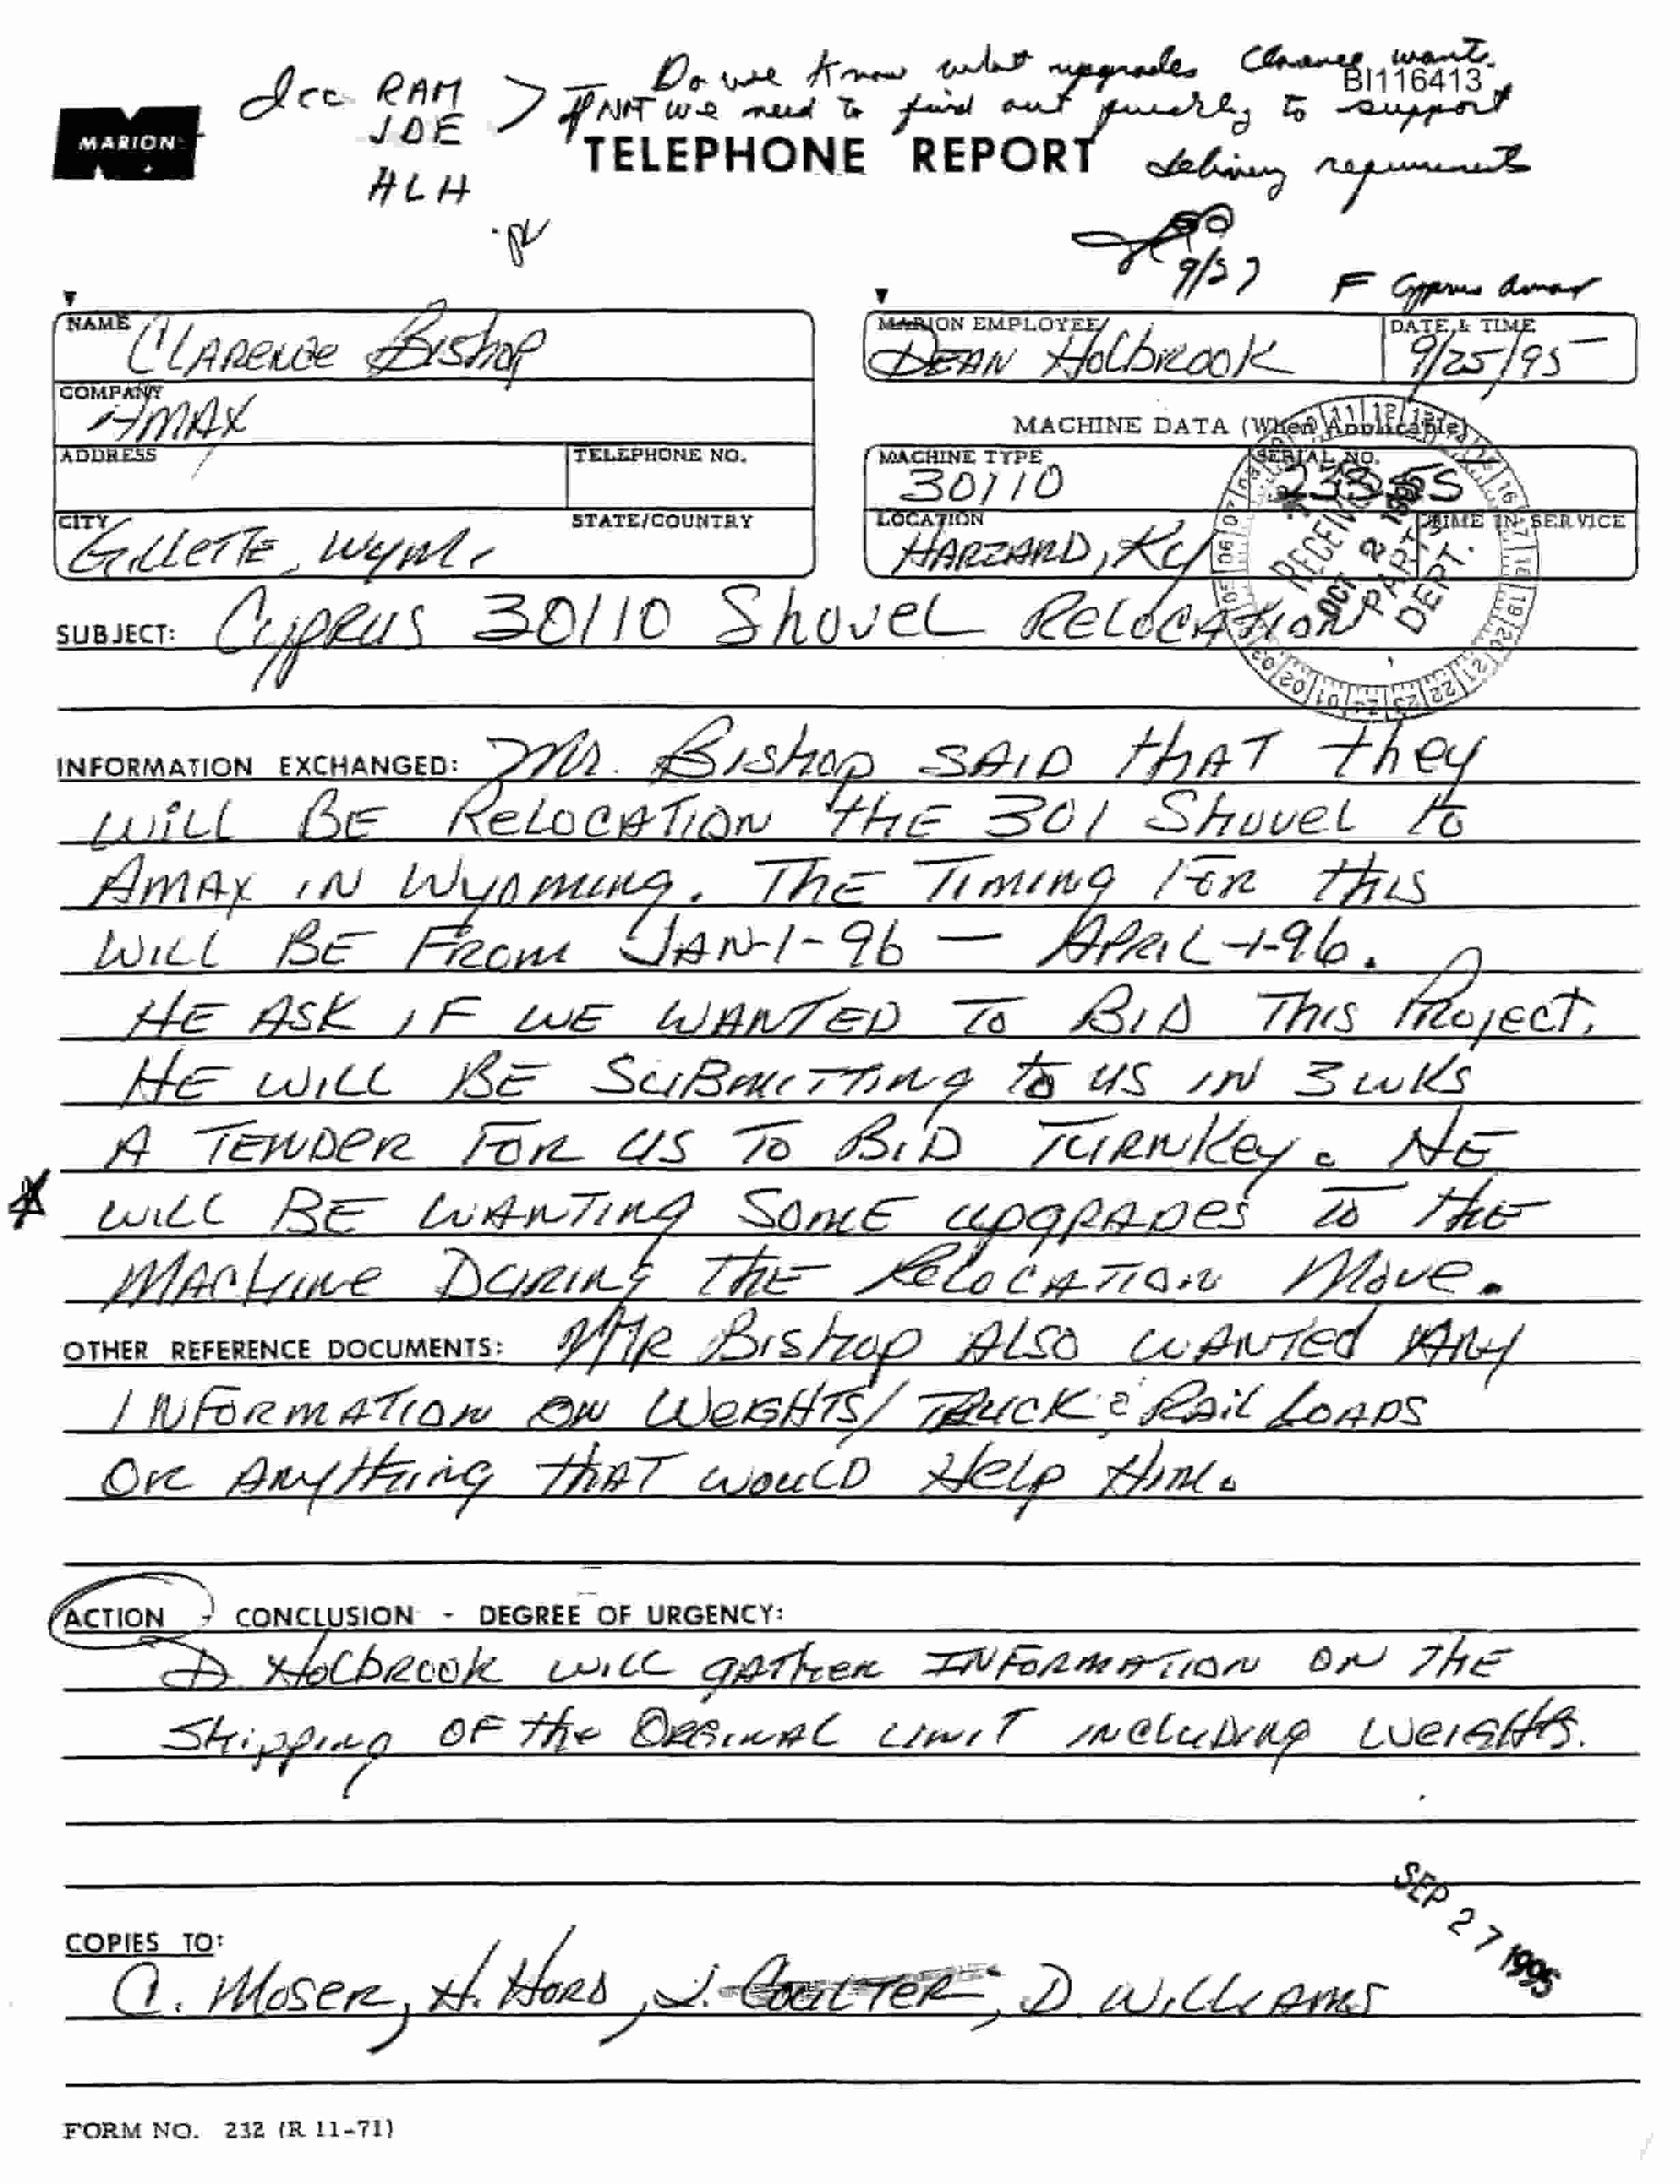 dcc RAM
JDE
ALH
Do we know what upgrades Clarence wants.
BI116413
If NOT we need to find out quickly to support
delivery requirements
MARION
TELEPHONE REPORT
9/27
F Cyprus Amax
NAME CLARENCE BISHOP
MARION EMPLOYEE DEAN HOLBROOK
DATE & TIME 9/25/95
COMPANY AMAX
MACHINE DATA (When Applicable)
ADDRESS
TELEPHONE NO.
MACHINE TYPE 30110
SERIAL NO.
CITY GILLETTE, WYM.
STATE/COUNTRY
LOCATION HARZARD, KY
TIME IN SERVICE
RECEIVED
OCT 2 1995
PARTS
DEPT.
SUBJECT: CYPRUS 30110 SHOVEL RELOCATION
INFORMATION EXCHANGED: MR. BISHOP SAID THAT THEY
WILL BE RELOCATION THE 301 SHOVEL TO
AMAX IN WYOMING. THE TIMING FOR THIS
WILL BE FROM JAN-1-96 — APRIL-1-96.
HE ASK IF WE WANTED TO BID THIS PROJECT.
HE WILL BE SUBMITTING TO US IN 3 WKS
A TENDER FOR US TO BID TURNKEY. HE
* WILL BE WANTING SOME UPGRADES TO THE
MACHINE DURING THE RELOCATION MOVE.
OTHER REFERENCE DOCUMENTS: MR BISHOP ALSO WANTED ANY
INFORMATION ON WEIGHTS/ TRUCK & RAIL LOADS
OR ANYTHING THAT WOULD HELP HIM.
ACTION - CONCLUSION - DEGREE OF URGENCY:
D. HOLBROOK WILL GATHER INFORMATION ON THE
SHIPPING OF THE ORGINAL UNIT INCLUDING WEIGHTS.
SEP 27 1995
COPIES TO:
C. MOSER, H. HORD, J. COULTER, D. WILLIAMS
FORM NO. 232 (R 11-71)